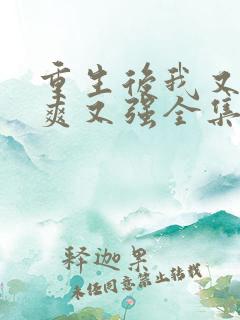 重生后我又
爽又强全集
释迦果
未经同意禁止转载